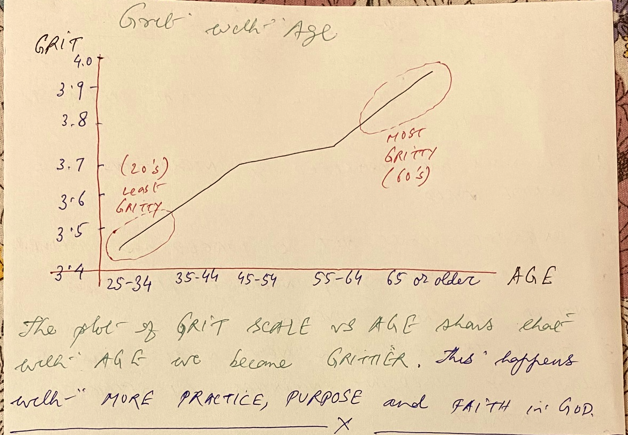 Grit with Age
GRIT
4.0
3.9
3.8
3.7
3.6
3.5
3.4
(20's)
LEAST
GRITTY
MOST
GRITTY
(60's)
25-34 35-44 45-54 55-64 65 or older AGE
The plot of GRIT SCALE vs AGE shows that
with AGE we become GRITTIER. This happens
with MORE PRACTICE, PURPOSE and FAITH in GOD.
X